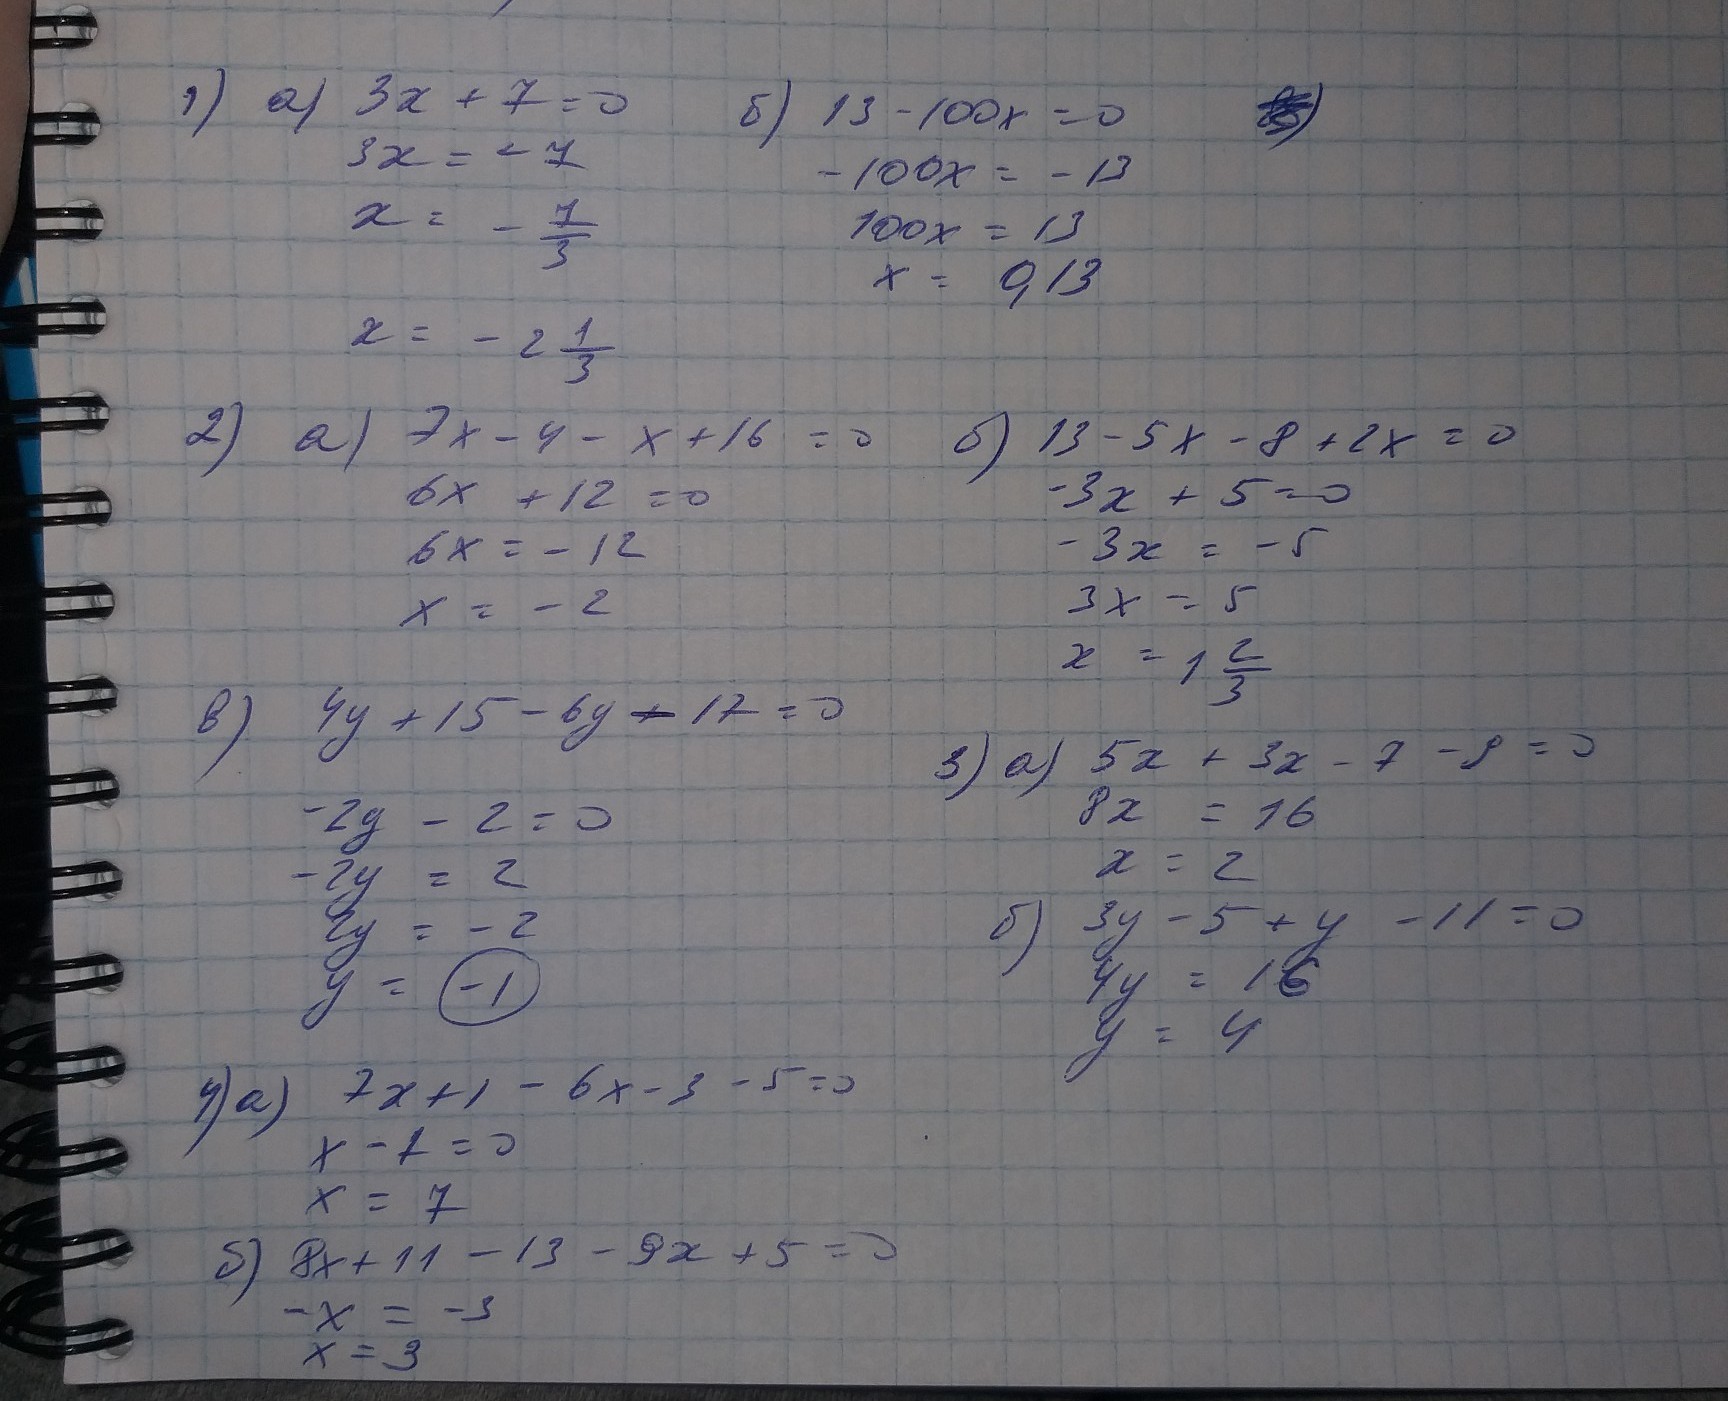 1) а) 3x + 7 = 0
3x = -7
x = - 7/3
x = - 2 1/3
б) 13 - 100x = 0
-100x = -13
100x = 13
x = 0,13
2) а) 7x - 4 - x + 16 = 0
6x + 12 = 0
6x = -12
x = -2
б) 13 - 5x - 8 + 2x = 0
-3x + 5 = 0
-3x = -5
3x = 5
x = 1 2/3
в) 4y + 15 - 6y - 17 = 0
-2y - 2 = 0
-2y = 2
2y = -2
y = -1
3) а) 5x + 3x - 7 - 9 = 0
8x = 16
x = 2
б) 3y - 5 + y - 11 = 0
4y = 16
y = 4
4) а) 7x + 1 - 6x - 3 - 5 = 0
x - 7 = 0
x = 7
б) 8x + 11 - 13 - 9x + 5 = 0
-x = -3
x = 3